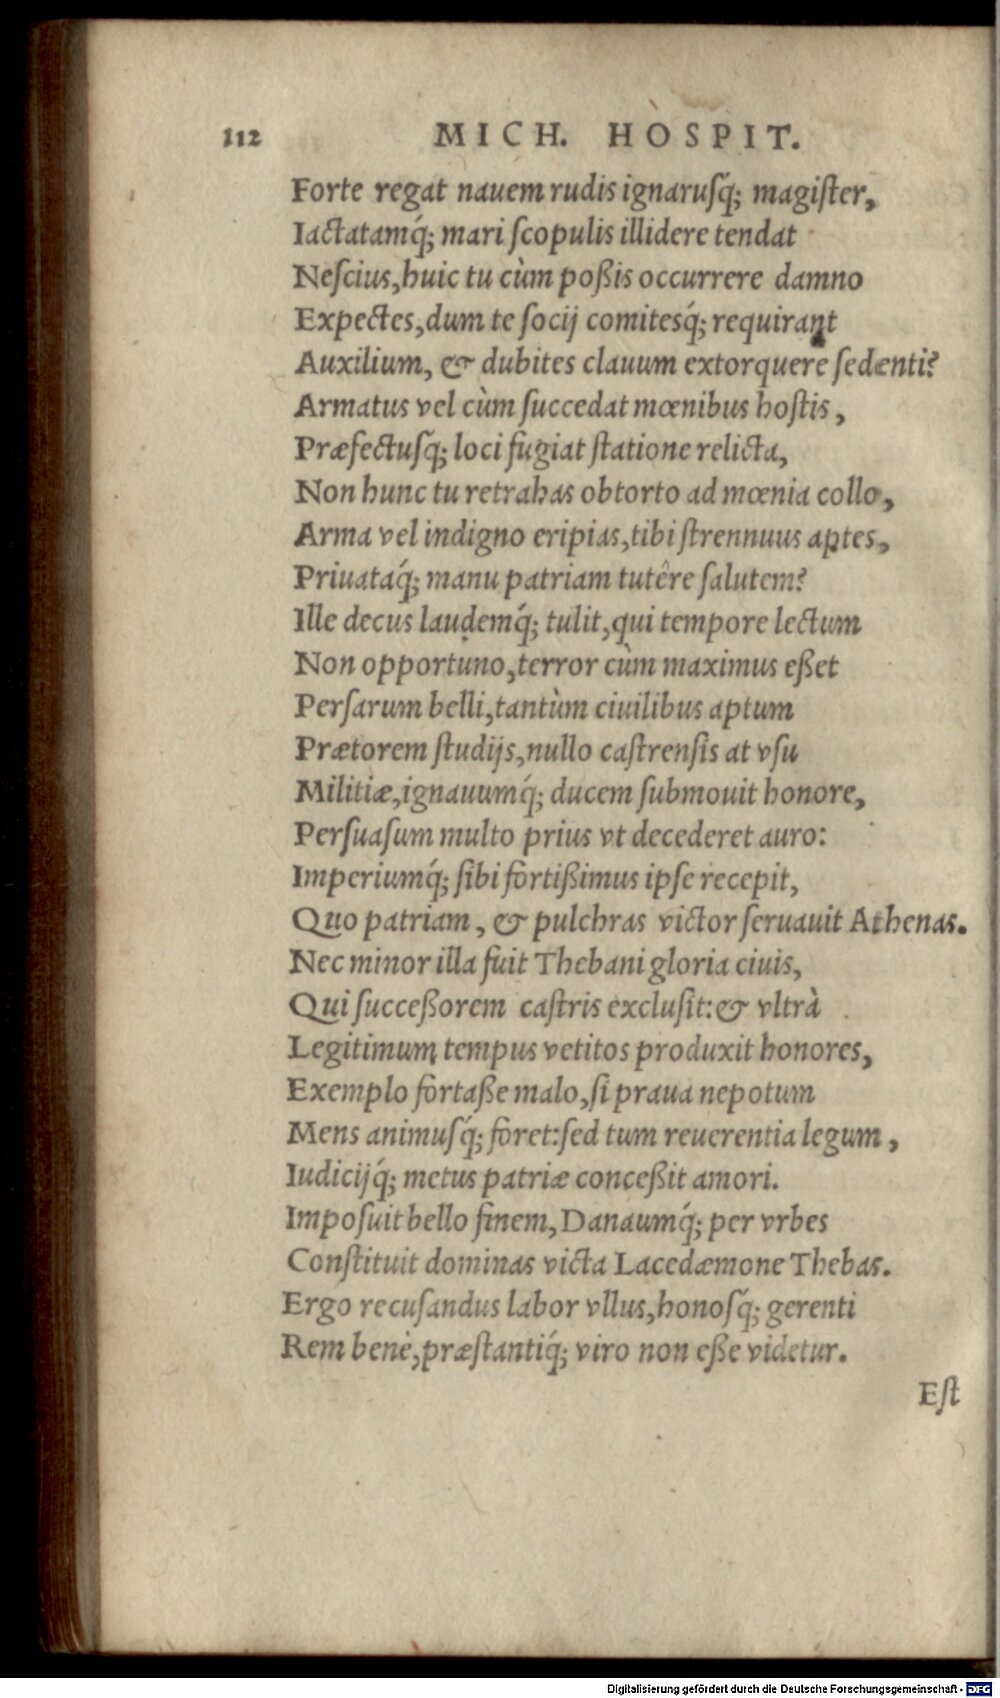 112 MICH. HOSPIT.
Forte regat nauem rudis ignaruſq́; magiſter,
Iactatamq́; mari ſcopulis illidere tendat
Neſcius, huic tu cùm poßis occurrere damno
Expectes, dum te ſocij comitesq́; requirant
Auxilium, & dubites clauum extorquere ſedenti?
Armatus vel cùm ſuccedat mœnibus hoſtis,
Præfectuſq́; loci fugiat ſtatione relicta,
Non hunc tu retrahas obtorto ad mœnia collo,
Arma vel indigno eripias, tibi ſtrennuus aptes,
Priuataq́; manu patriam tutêre ſalutem?
Ille decus laudemq́; tulit, qui tempore lectum
Non opportuno, terror cùm maximus eßet
Perſarum belli, tantùm ciuilibus aptum
Prætorem ſtudijs, nullo caſtrenſis at vſu
Militiæ, ignauumq́; ducem ſubmouit honore,
Perſuaſum multo prius vt decederet auro:
Imperiumq́; ſibi fortißimus ipſe recepit,
Quo patriam, & pulchras victor ſeruauit Athenas.
Nec minor illa fuit Thebani gloria ciuis,
Qui succeßorem caſtris excluſit: & vltrà
Legitimum tempus vetitos produxit honores,
Exemplo fortaße malo, ſi praua nepotum
Mens animuſq́; foret: ſed tum reuerentia legum,
Iudicijq́; metus patriæ conceßit amori.
Impoſuit bello finem, Danaumq́; per vrbes
Conſtituit dominas victa Lacedæmone Thebas.
Ergo recuſandus labor vllus, honoſq́; gerenti
Rem benè, præſtantiq́; viro non eße videtur.
Eſt
Digitalisierung gefördert durch die Deutsche Forschungsgemeinschaft - DFG